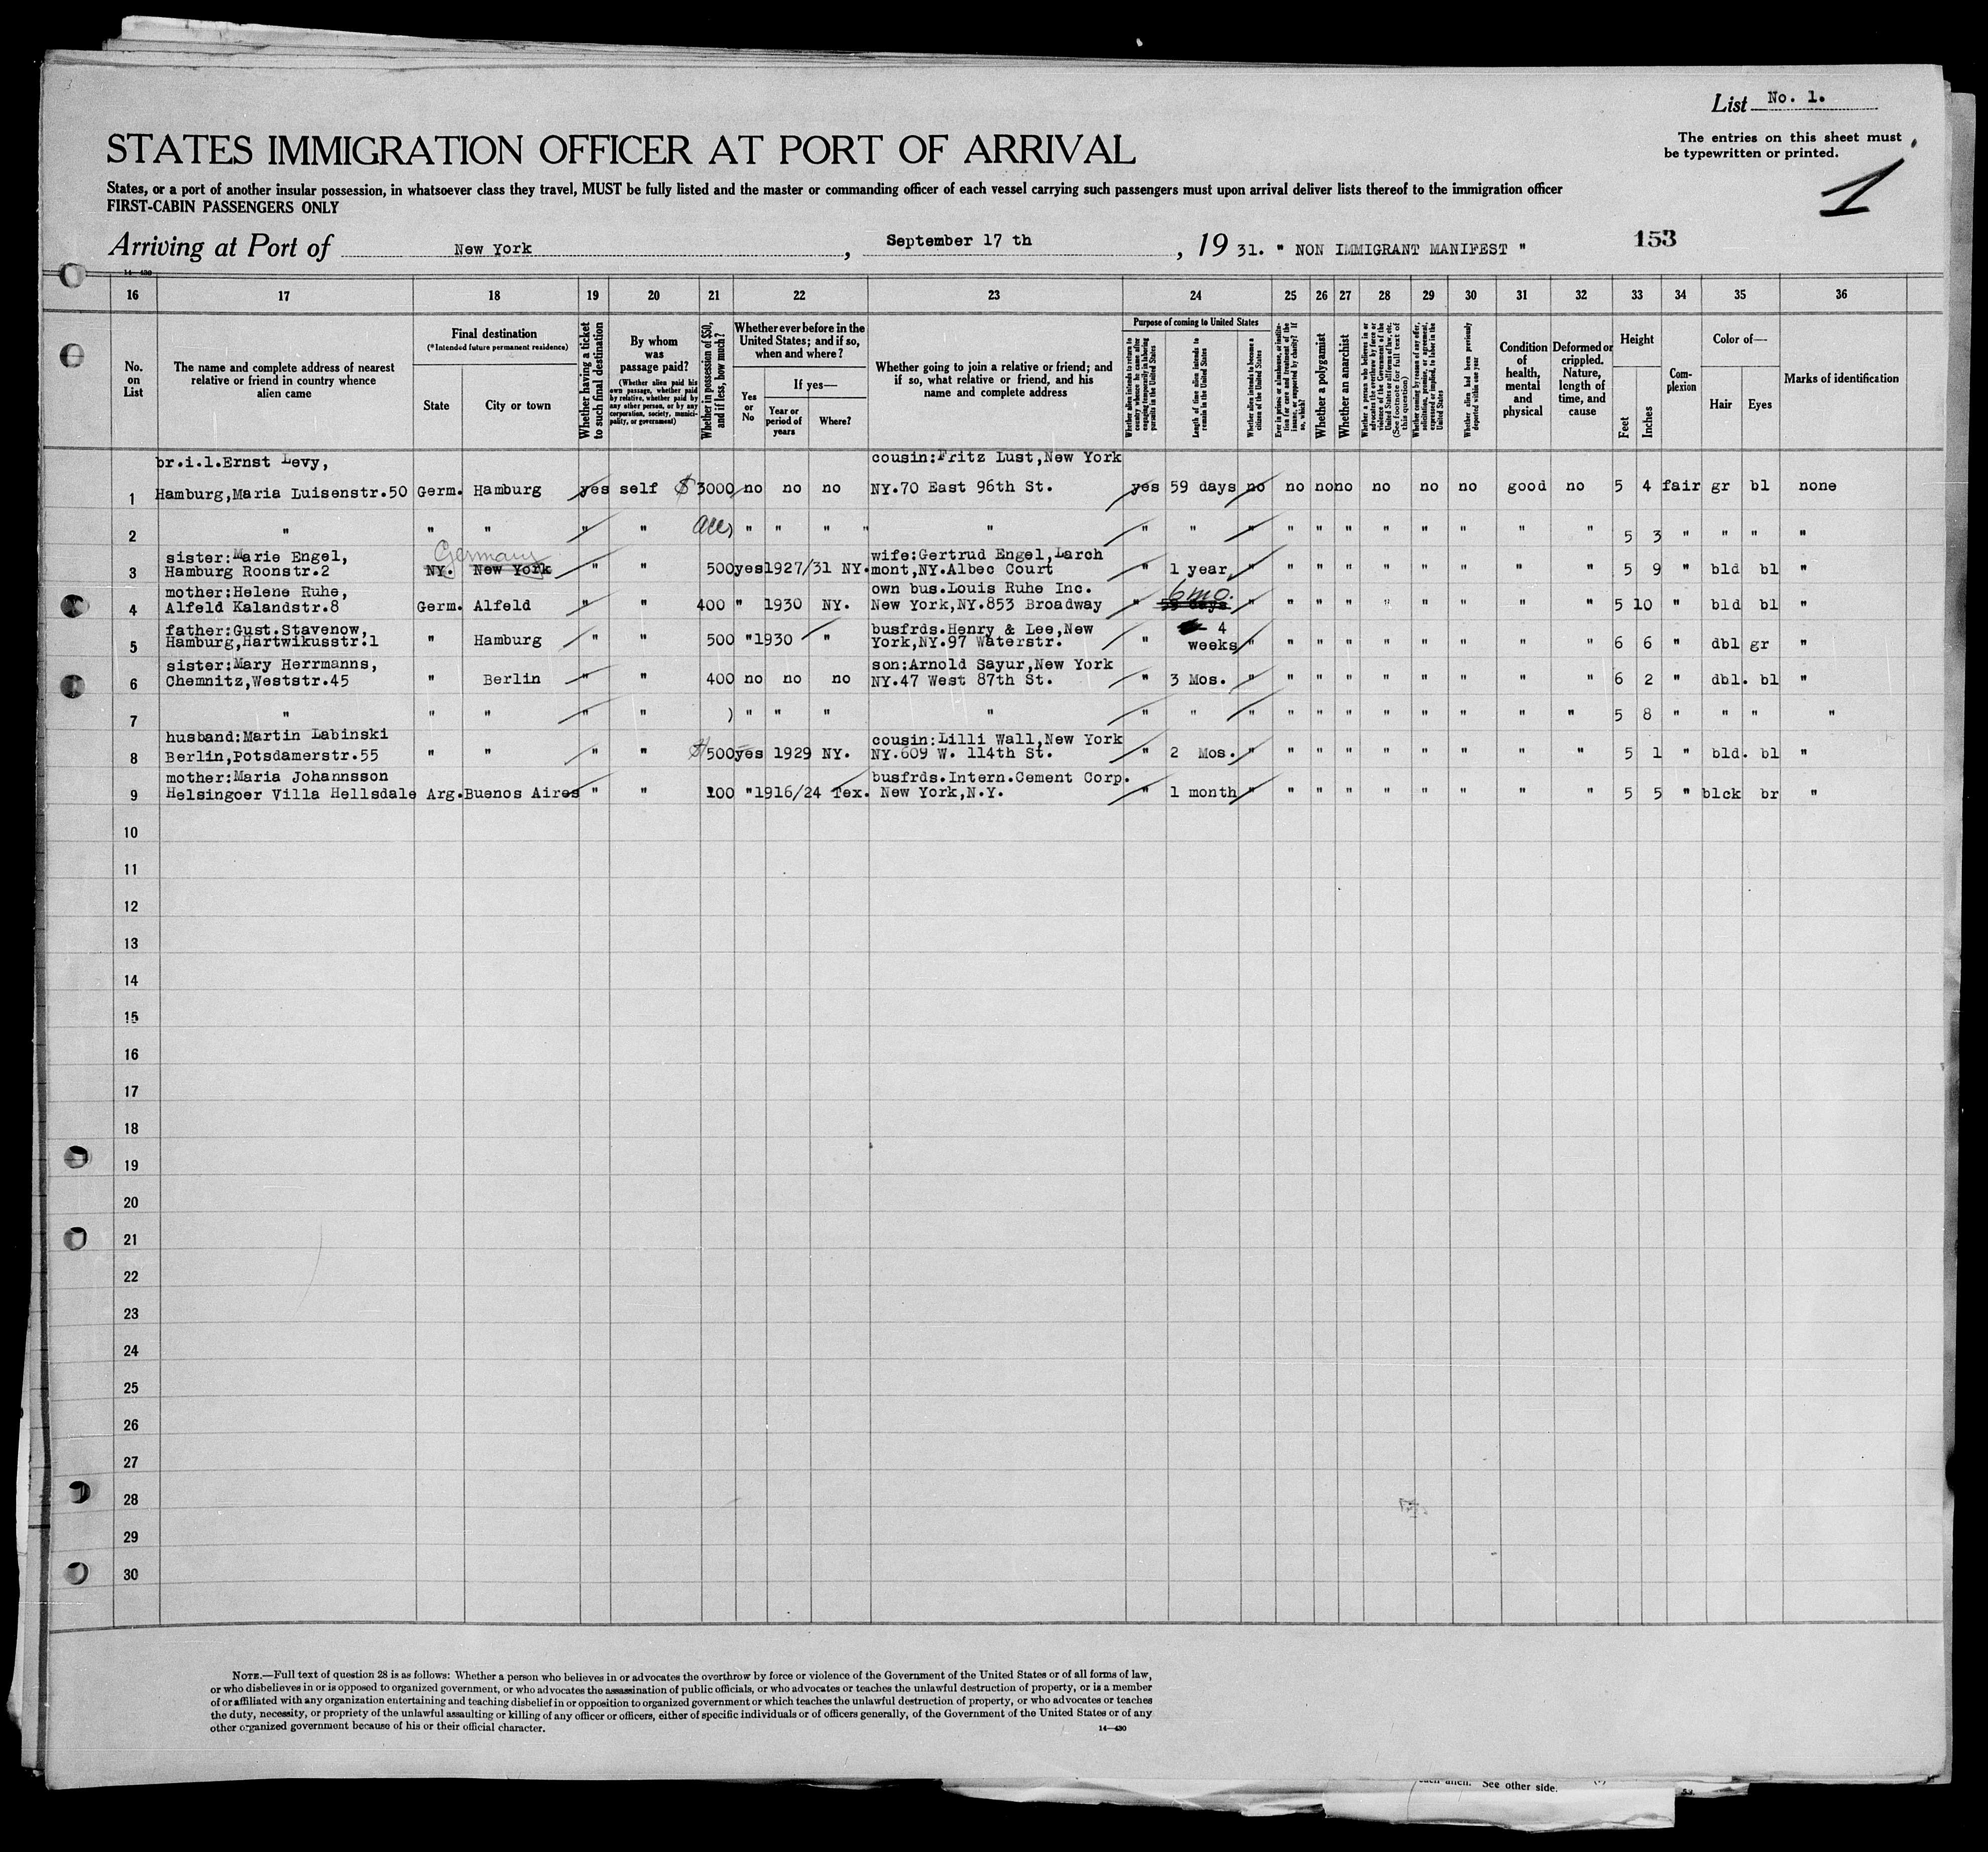 List No. 1.
The entries on this sheet must
be typewritten or printed.
1
STATES IMMIGRATION OFFICER AT PORT OF ARRIVAL
States, or a port of another insular possession, in whatsoever class they travel, MUST be fully listed and the master or commanding officer of each vessel carrying such passengers must upon arrival deliver lists thereof to the immigration officer
FIRST-CABIN PASSENGERS ONLY
Arriving at Port of New York, September 17 th, 19 31. " NON IMMIGRANT MANIFEST " 153
14—430
16 17 18 19 20 21 22 23 24 25 26 27 28 29 30 31 32 33 34 35 36
No. on List
The name and complete address of nearest relative or friend in country whence alien came
Final destination
(*Intended future permanent residence)
State
City or town
Whether having a ticket to such final destination
By whom was passage paid?
(Whether alien paid his own passage, whether paid by relative, whether paid by any other person, or by any corporation, society, municipality, or government)
Whether in possession of $50, and if less, how much?
Whether ever before in the United States; and if so, when and where?
Yes or No
If yes—
Year or period of years
Where?
Whether going to join a relative or friend; and if so, what relative or friend, and his name and complete address
Purpose of coming to United States
Whether alien intends to return to country whence he came after engaging temporarily in laboring pursuits in the United States
Length of time alien intends to remain in the United States
Whether alien intends to become a citizen of the United States
Ever in prison or almshouse, or institution for care and treatment of the insane, or supported by charity? If so, which?
Whether a polygamist
Whether an anarchist
Whether a person who believes in or advocates the overthrow by force or violence of the Government of the United States or all forms of law, etc. (See footnote for full text of this question)
Whether coming by reason of any offer, solicitation, promise, or agreement, expressed or implied, to labor in the United States
Whether alien had been previously deported within one year
Condition of health, mental and physical
Deformed or crippled. Nature, length of time, and cause
Height
Feet
Inches
Complexion
Color of—
Hair
Eyes
Marks of identification
br.i.l.Ernst Levy, cousin:Fritz Lust,New York
1 Hamburg,Maria Luisenstr.50 Germ. Hamburg yes self $ 3000 no no no NY.70 East 96th St. yes 59 days no no no no no no no good no 5 4 fair gr bl none
2 " " " " " all) " " " " " " " " " " " " " " " " 5 3 " " " "
sister:Marie Engel, Germany wife:Gertrud Engel,Larch
3 Hamburg Roonstr.2 NY. New York " " 500 yes 1927/31 NY. mont,NY.Albec Court " 1 year " " " " " " " " " 5 9 " bld bl "
mother:Helene Ruhe, own bus.Louis Ruhe Inc. 6 mo.
4 Alfeld Kalandstr.8 Germ. Alfeld " " 400 " 1930 NY. New York,NY.853 Broadway " 59 days " " " " " " " " " 5 10 " bld bl "
father:Gust.Stavenow, busfrds.Henry & Lee,New 4
5 Hamburg,Hartwikusstr.1 " Hamburg " " 500 " 1930 " York,NY.97 Waterstr. " weeks " " " " " " " " " 6 6 " dbl gr "
sister:Mary Herrmanns, son:Arnold Sayur,New York
6 Chemnitz,Weststr.45 " Berlin " " 400 no no no NY.47 West 87th St. " 3 Mos. " " " " " " " " " 6 2 " dbl. bl "
7 " " " " " ) " " " " " " " " " " " " " " " 5 8 " " " "
husband:Martin Labinski cousin:Lilli Wall,New York
8 Berlin,Potsdamerstr.55 " " " " $ 500 yes 1929 NY. NY.609 W. 114th St. " 2 Mos. " " " " " " " " " 5 1 " bld. bl "
mother:Maria Johannsson busfrds.Intern.Cement Corp.
9 Helsingoer Villa Hellsdale Arg. Buenos Aires " " 100 " 1916/24 Tex. New York,N.Y. " 1 month " " " " " " " " " 5 5 " blck br "
10
11
12
13
14
15
16
17
18
19
20
21
22
23
24
25
26
27
28
29
30
NOTE.—Full text of question 28 is as follows: Whether a person who believes in or advocates the overthrow by force or violence of the Government of the United States or of all forms of law,
or who disbelieves in or is opposed to organized government, or who advocates the assassination of public officials, or who advocates or teaches the unlawful destruction of property, or is a member
of or affiliated with any organization entertaining and teaching disbelief in or opposition to organized government or which teaches the unlawful destruction of property, or who advocates or teaches
the duty, necessity, or propriety of the unlawful assaulting or killing of any officer or officers, either of specific individuals or of officers generally, of the Government of the United States or of any
other organized government because of his or their official character.
14—430
alien. See other side.